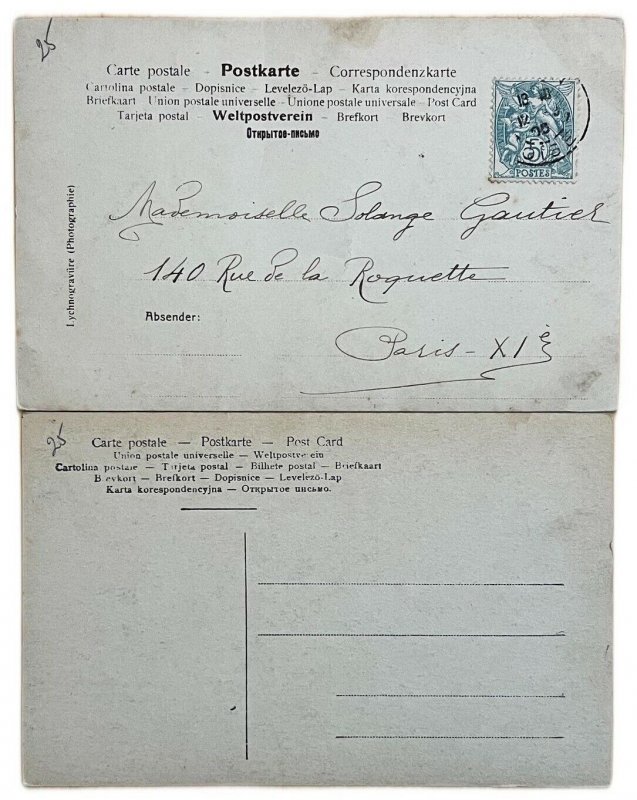 25
Carte postale — Postkarte — Correspondenzkarte
Cartolina postale – Dopisnice – Levelező-Lap – Karta korespondencyjna
Briefkaart Union postale universelle – Unione postale universale – Post Card
Tarjeta postal – Weltpostverein – Brefkort – Brevkort
Открытое-письмо
POSTES
Lychnogravüre (Photographie)
Mademoiselle Solange Gautier
140 Rue de la Roquette
Absender:
Paris - XIè
25
Carte postale — Postkarte — Post Card
Union postale universelle — Weltpostverein
Cartolina postale — Tarjeta postal — Bilhete postal — Briefkaart
Brevkort — Brefkort — Dopisnice — Levelező-Lap
Karta korespondencyjna — Открытое письмо.